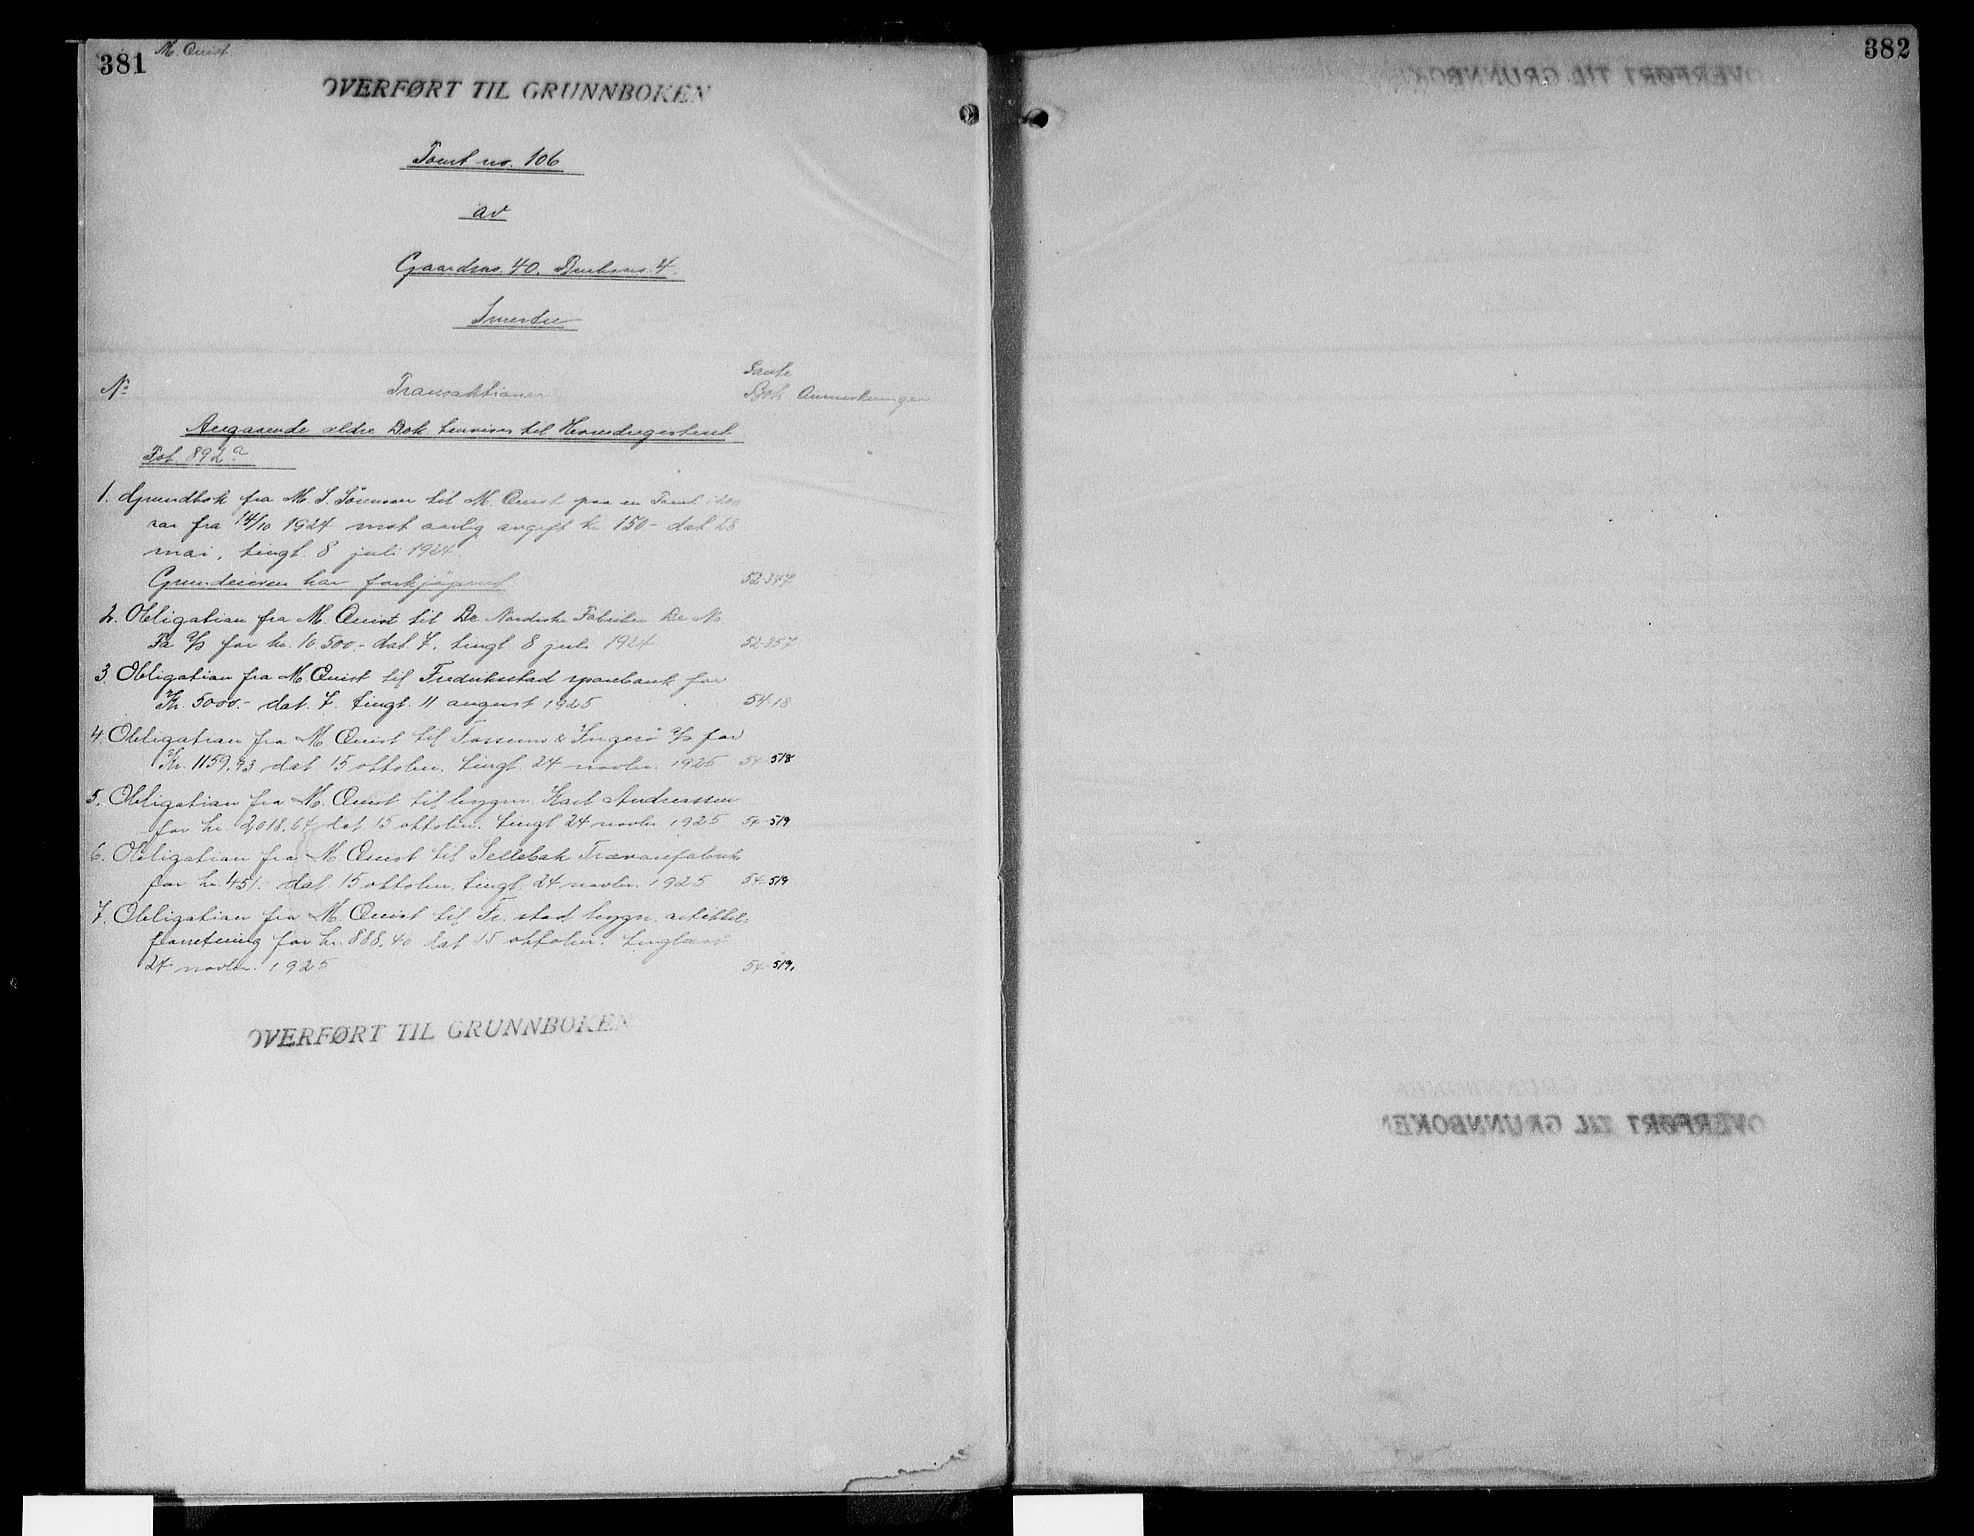 381 M. Quist
OVERFØRT TIL GRUNNBOKEN
Tomt no. 106
av
Gaardsno. 40. Bruksno. 4.
No Transaktioner Pante Bok Anmerkninger
Angaaende ældre Dok. henvises til Hovedregisteret
Fol. 892a
1. Grundbok fra M. S. Sørensen til M. Quist paa en Tomt
aar fra 14/10 1924 mot aarlig avgift kr. 150- dat 28
mai, tingl. 8 juli 1924.
Grundeieren har forkjøpsret 52-347
2. Obligation fra M. Quist til De Nordiske Fabriker De No
Fa a/s for kr. 10.500.- dat. 7. tingl. 8 juli 1924 52-357
3. Obligation fra M. Quist til Fredriksstad sparebank for
Kr. 5000.- dat. 7. tingl. 11 august 1925 54-18
4. Obligation fra M. Quist til Fossum & Ingerø a/s for
Kr. 1159,93 dat 15 oktober. tingl. 24 novbr. 1925 54-518
5. Obligation fra M. Quist til bygm. Karl Andreassen
for kr. 2018,64 dat 15 oktober. tingl 24 novbr 1925 54-519
6. Obligation fra M. Quist til Sellebak Trævarefabrik
for kr. 451.- dat 15 oktober. tingl. 24 novbr. 1925 54-519
7. Obligation fra M. Quist til Fr. stad bygn. artikkel-
forretning for kr. 888,40 dat 15 oktober. tinglæst
24 novbr. 1925 54-519.
OVERFØRT TIL GRUNNBOKEN
382